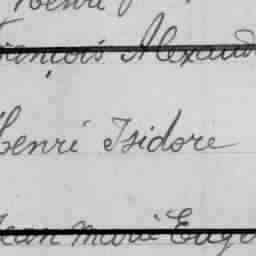 Henri
François Alexand
Henri Isidore
Jean Marie Eugè